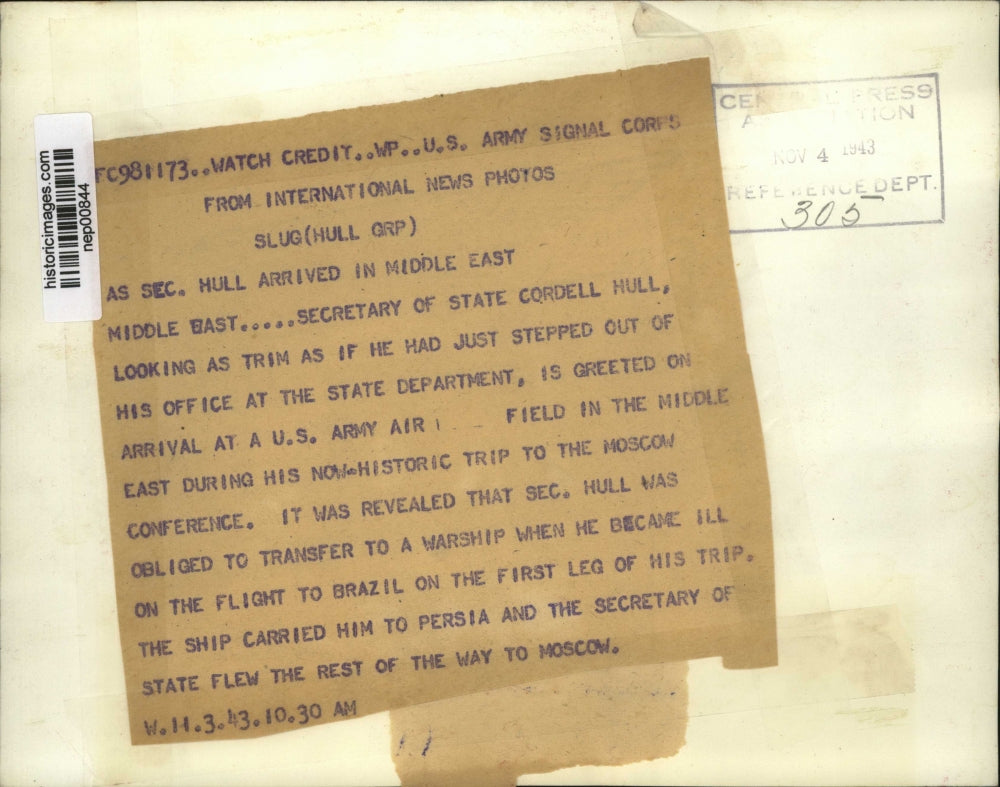 historicimages.com
nep00844
CENTRAL PRESS
ASSOCIATION
NOV 4 1943
REFERENCE DEPT.
305
FC981173..WATCH CREDIT..WP..U.S. ARMY SIGNAL CORPS
FROM INTERNATIONAL NEWS PHOTOS
SLUG(HULL GRP)
AS SEC. HULL ARRIVED IN MIDDLE EAST
MIDDLE EAST.....SECRETARY OF STATE CORDELL HULL,
LOOKING AS TRIM AS IF HE HAD JUST STEPPED OUT OF
HIS OFFICE AT THE STATE DEPARTMENT, IS GREETED ON
ARRIVAL AT A U.S. ARMY AIR FIELD IN THE MIDDLE
EAST DURING HIS NOW-HISTORIC TRIP TO THE MOSCOW
CONFERENCE. IT WAS REVEALED THAT SEC. HULL WAS
OBLIGED TO TRANSFER TO A WARSHIP WHEN HE BECAME ILL
ON THE FLIGHT TO BRAZIL ON THE FIRST LEG OF HIS TRIP.
THE SHIP CARRIED HIM TO PERSIA AND THE SECRETARY OF
STATE FLEW THE REST OF THE WAY TO MOSCOW.
W.11.3.43.10.30 AM